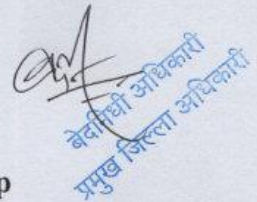 बेदनिधी अधिकारी
प्रमुख जिल्ला अधिकारी
p